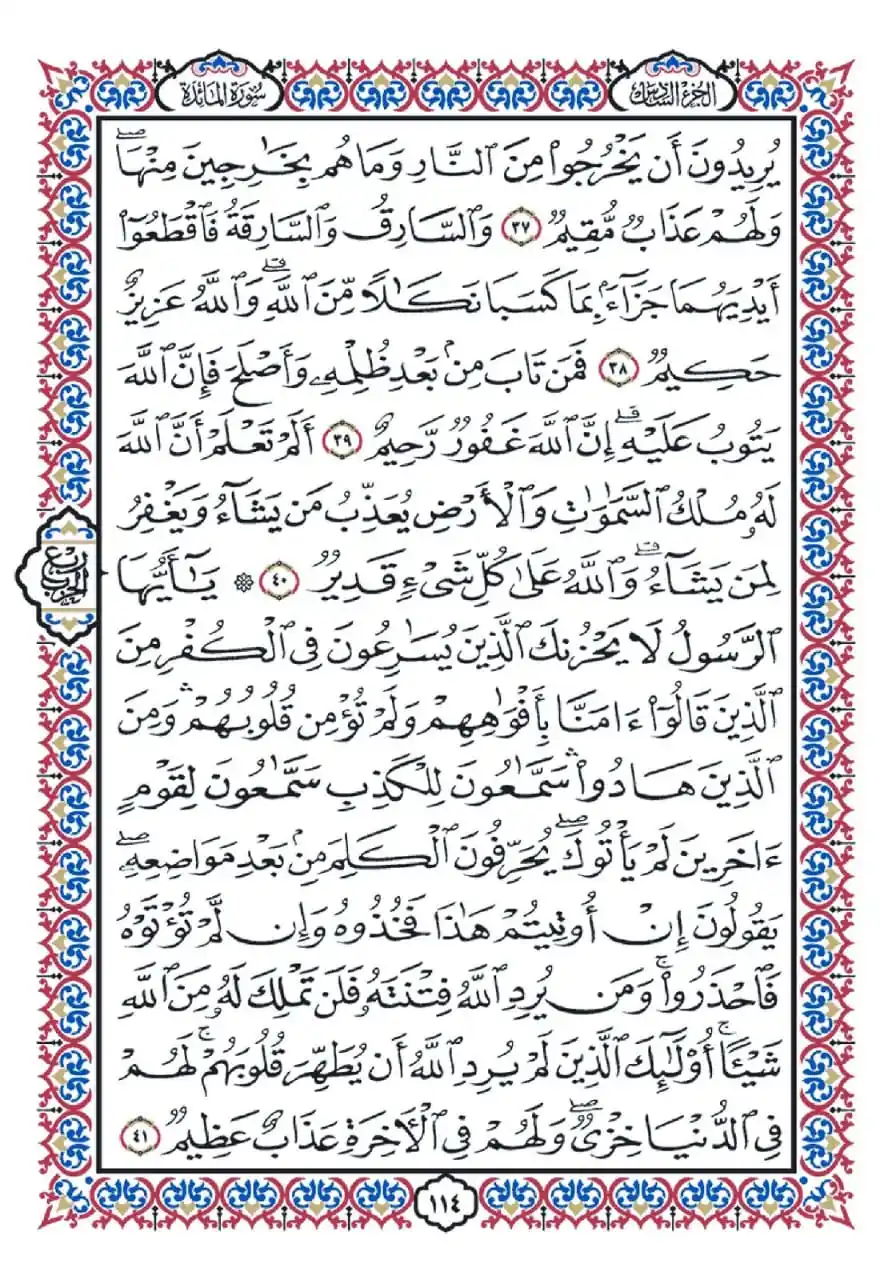 الجزء السادس
سورة المائدة
يُرِيدُونَ أَن يَخْرُجُوا۟ مِنَ ٱلنَّارِ وَمَا هُم بِخَـٰرِجِينَ مِنْهَا ۖ
وَلَهُمْ عَذَابٌ مُّقِيمٌ ٣٧ وَٱلسَّارِقُ وَٱلسَّارِقَةُ فَٱقْطَعُوٓا۟
أَيْدِيَهُمَا جَزَآءًۢ بِمَا كَسَبَا نَكَـٰلًا مِّنَ ٱللَّهِ ۗ وَٱللَّهُ عَزِيزٌ
حَكِيمٌ ٣٨ فَمَن تَابَ مِنۢ بَعْدِ ظُلْمِهِۦ وَأَصْلَحَ فَإِنَّ ٱللَّهَ
يَتُوبُ عَلَيْهِ ۗ إِنَّ ٱللَّهَ غَفُورٌ رَّحِيمٌ ٣٩ أَلَمْ تَعْلَمْ أَنَّ ٱللَّهَ
لَهُۥ مُلْكُ ٱلسَّمَـٰوَٰتِ وَٱلْأَرْضِ يُعَذِّبُ مَن يَشَآءُ وَيَغْفِرُ
لِمَن يَشَآءُ ۗ وَٱللَّهُ عَلَىٰ كُلِّ شَىْءٍ قَدِيرٌ ٤٠ ۞ يَـٰٓأَيُّهَا
ٱلرَّسُولُ لَا يَحْزُنكَ ٱلَّذِينَ يُسَـٰرِعُونَ فِى ٱلْكُفْرِ مِنَ
ٱلَّذِينَ قَالُوٓا۟ ءَامَنَّا بِأَفْوَٰهِهِمْ وَلَمْ تُؤْمِن قُلُوبُهُمْ ۛ وَمِنَ
ٱلَّذِينَ هَادُوا۟ ۛ سَمَّـٰعُونَ لِلْكَذِبِ سَمَّـٰعُونَ لِقَوْمٍ
ءَاخَرِينَ لَمْ يَأْتُوكَ ۖ يُحَرِّفُونَ ٱلْكَلِمَ مِنۢ بَعْدِ مَوَاضِعِهِۦ ۖ
يَقُولُونَ إِنْ أُوتِيتُمْ هَـٰذَا فَخُذُوهُ وَإِن لَّمْ تُؤْتَوْهُ
فَٱحْذَرُوا۟ ۚ وَمَن يُرِدِ ٱللَّهُ فِتْنَتَهُۥ فَلَن تَمْلِكَ لَهُۥ مِنَ ٱللَّهِ
شَيْـًٔا ۚ أُو۟لَـٰٓئِكَ ٱلَّذِينَ لَمْ يُرِدِ ٱللَّهُ أَن يُطَهِّرَ قُلُوبَهُمْ ۚ لَهُمْ
فِى ٱلدُّنْيَا خِزْىٌ ۖ وَلَهُمْ فِى ٱلْـَٔاخِرَةِ عَذَابٌ عَظِيمٌ ٤١
ربع
الحزب
١١٤